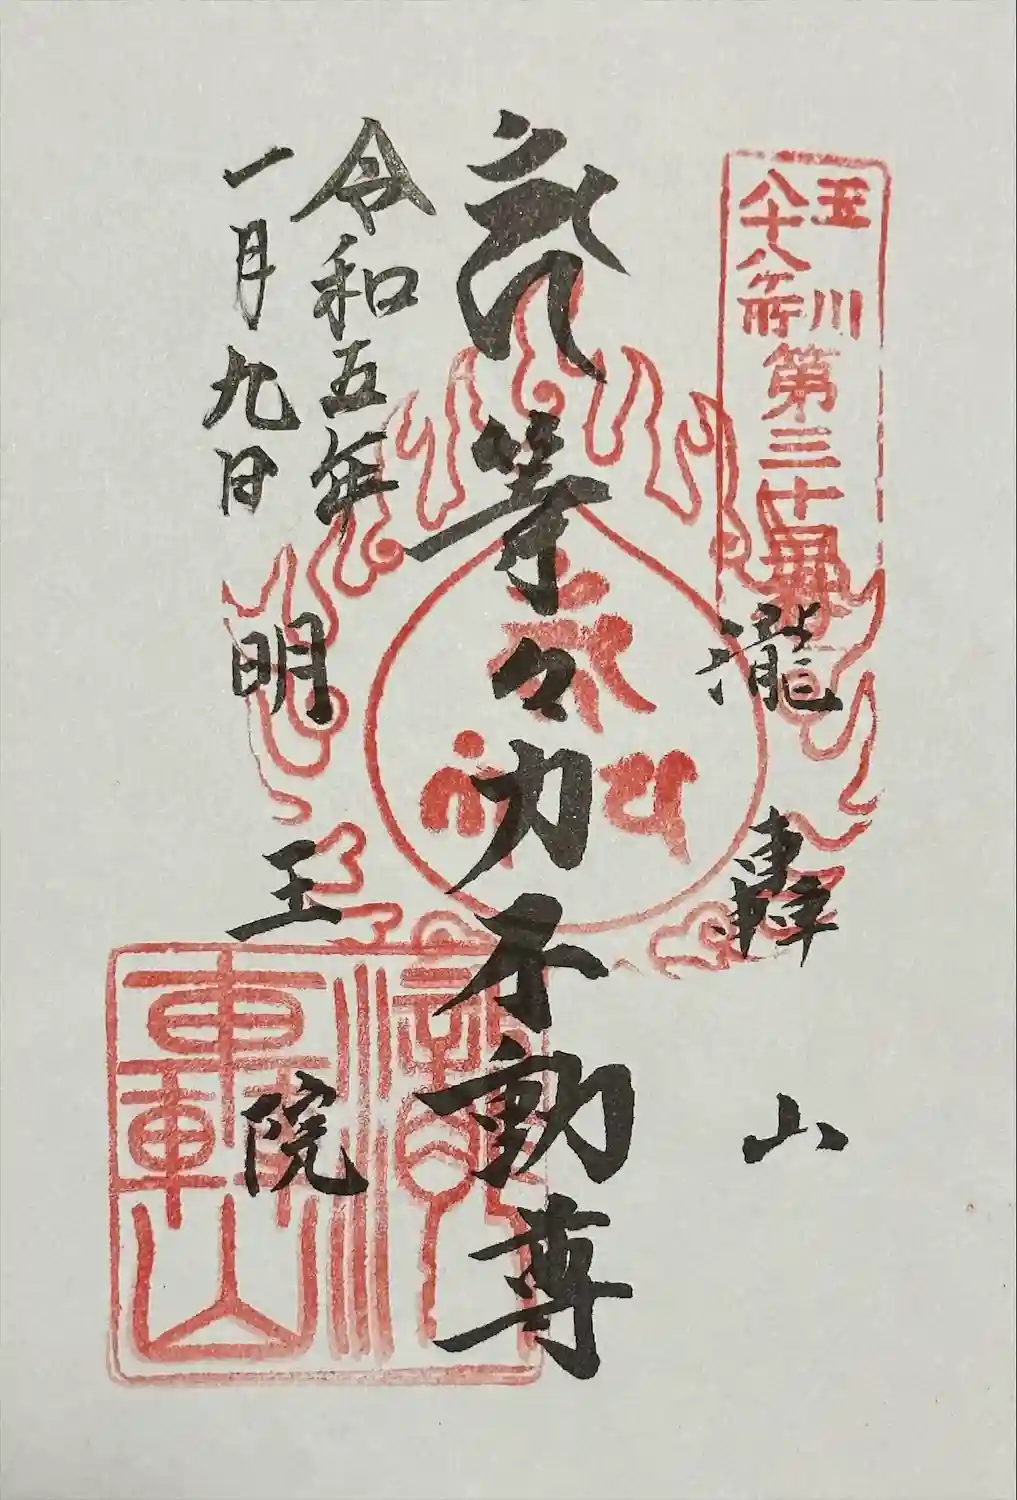 玉川
八十八ヶ所
第三十
瀧轟山
等々力不動尊
令和五年
一月九日
明王院
瀧
轟山